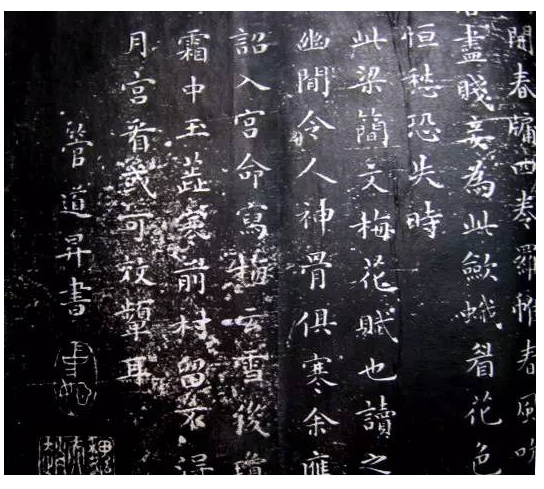 開春牖四卷羅帷春風吹
盡賤妾為此歛蛾眉花色
恒愁恐失時
此梁簡文梅花賦也讀之
幽閒令人神骨俱寒余應
詔入宮命寫梅云雪後瓊
霜中玉蕊寒前村留不得
月宮看幾可效顰耳
管道昇書